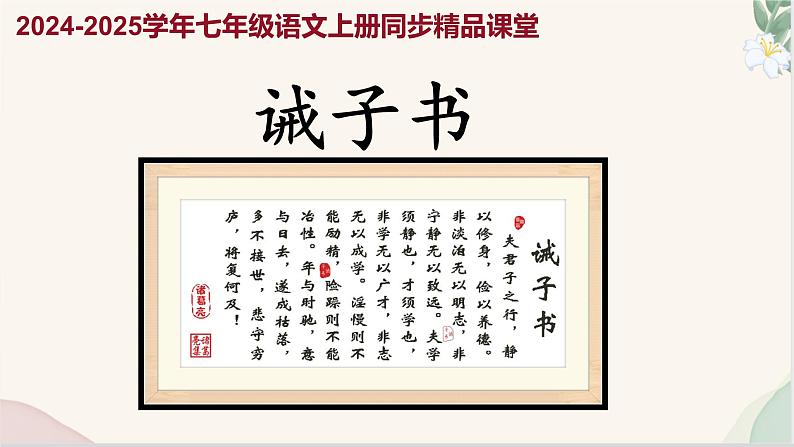 2024-2025学年七年级语文上册同步精品课堂
诫子书
诫子书
夫君子之行，静
以修身，俭以养德。
非淡泊无以明志，非
宁静无以致远。夫学
须静也，才须学也，
非学无以广才，非志
无以成学。淫慢则不
能励精，险躁则不能
冶性。年与时驰，意
与日去，遂成枯落，
多不接世，悲守穷
庐，将复何及！
诸葛亮
诸葛
亮集